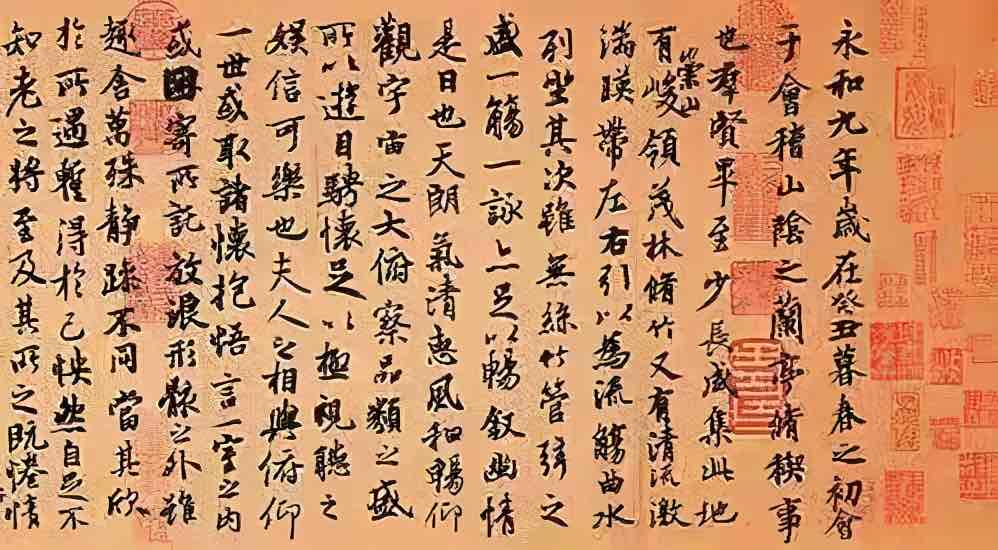 永和九年歲在癸丑暮春之初會
于會稽山陰之蘭亭脩禊事
也羣賢畢至少長咸集此地
有崇山峻領茂林脩竹又有清流激
湍暎帶左右引以為流觴曲水
列坐其次雖無絲竹管弦之
盛一觴一詠亦足以暢敘幽情
是日也天朗氣清惠風和暢仰
觀宇宙之大俯察品類之盛
所以遊目騁懷足以極視聽之
娛信可樂也夫人之相與俯仰
一世或取諸懷抱悟言一室之內
或因寄所託放浪形骸之外雖
趣舍萬殊靜躁不同當其欣
於所遇暫得於己怏然自足不
知老之將至及其所之既惓情